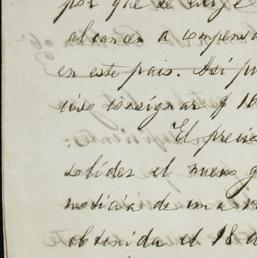 por que se exige
alcancen a compensa
en este pais. Asi pu
ciso consignar q 16
El precio
solides el nuevo g
noticia de una v
obtenida el 18 d